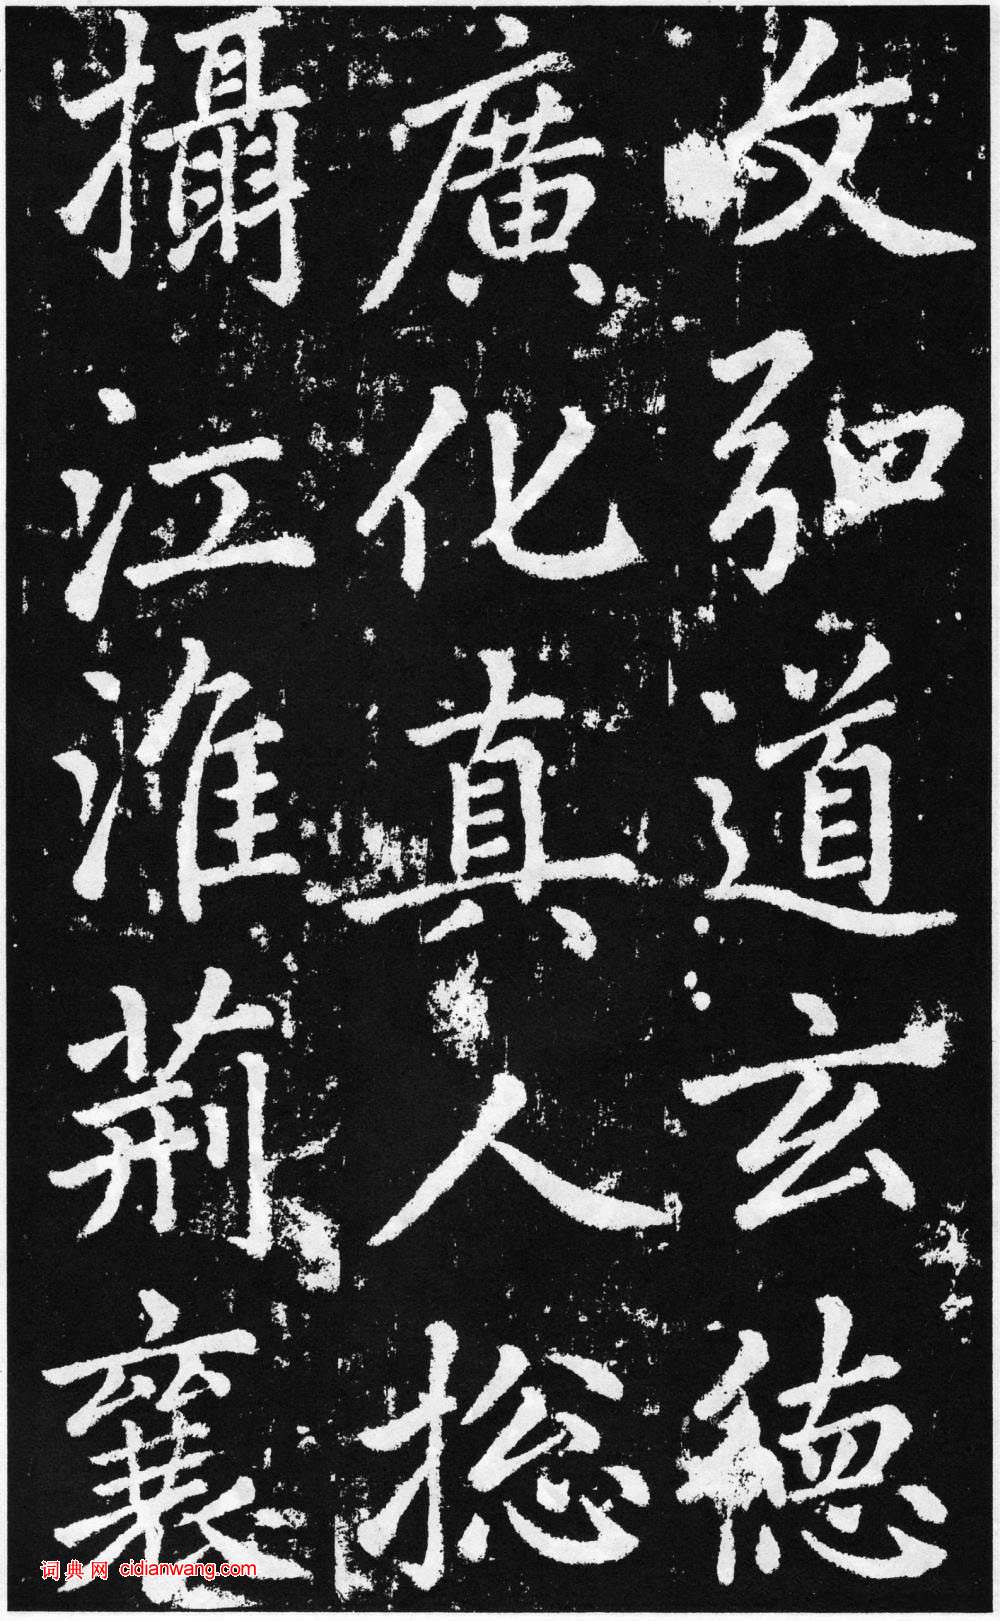 文弘道玄德
廣化真人捴
攝江淮荊襄
词典网 cidianwang.com